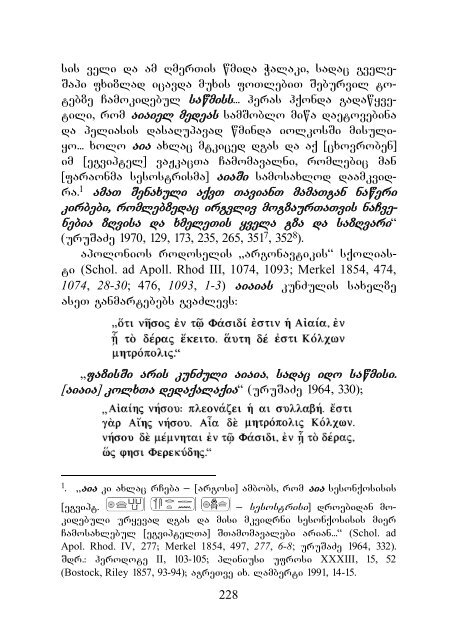 სის ველი და ამ ღმერთის წმიდა ჭალაკი, სადაც გველე-
შაპი ფხიზლად იცავდა მუხის ფოთლებით შებურვილ ტო-
ტებზე ჩამოკიდებულ საწმისს... ჰერას ჰქონდა გადაწყვე-
ტილი, რომ აიაიელ მედეას სამშობლო მიწა დაეტოვებინა
და პელიასის დასაღუპავად წმინდა იოლკოსში მისული-
ყო... ხოლო აია ახლაც მტკიცედ დგას და აქ [ცხოვრობენ]
იმ [ეგვიპტელ] ვაჟკაცთა ჩამომავალნი, რომლებიც მან
[ფარაონმა სესოსტრისმა] აიაში სამოსახლოდ დაამკვიდ-
რა.¹ ამათ შენახული აქვთ თავიანთ მამათგან ნაწერი
კირბები, რომლებზედაც ირგვლივ მოგზაურთათვის ნაჩვე-
ნებია ზღვისა და ხმელეთის ყველა გზა და საზღვარი“
(ურუშაძე 1970, 129, 173, 235, 265, 351⁷, 352⁸).
აპოლონიოს როდოსელის „არგონავტიკის“ სქოლიას-
ტი (Schol. ad Apoll. Rhod III, 1074, 1093; Merkel 1854, 474,
1074, 28-30; 476, 1093, 1-3) აიაიას კუნძულის სახელზე
ასეთ განმარტებებს გვაძლევს:
„ὅτι νῆσος ἐν τῷ Φάσιδί ἐστιν ἡ Αἰαία, ἐν
ᾗ τὸ δέρας ἔκειτο. ἅυτη δέ ἐστι Κόλχων
μητρόπολις.“
„ფაზისში არის კუნძული აიაია, სადაც იდო საწმისი.
[აიაია] კოლხთა დედაქალაქია“ (ურუშაძე 1964, 330);
„Αἰαίης νήσου: πλεονάζει ἡ αι συλλαβή. ἔστι
γὰρ Αἴης νήσου. Αἶα δὲ μητρόπολις Κόλχων.
νήσου δὲ μέμνηται ἐν τῷ Φάσιδι, ἐν ᾗ τὸ δέρας,
ὥς φησι Φερεκύδης.“
¹. „აია კი ახლაც რჩება – [არგოსი] ამბობს, რომ აია სესონქოსისის
[ეგვიპტ. – სესოსტრისი] დროებიდან მო-
კიდებული ურყევად დგას და მისი მკვიდრნი სესონქოსისის მიერ
ჩამოსახლებულ [ეგვიპტელთა] შთამომავალები არიან...“ (Schol. ad
Apol. Rhod. IV, 277; Merkel 1854, 497, 277, 6-8; ურუშაძე 1964, 332).
შდრ.: ჰეროდოტე II, 103-105; პლინიუსი უფროსი XXXIII, 15, 52
(Bostock, Riley 1857, 93-94); აგრეთვე იხ. ლამბერტი 1991, 14-15.
228